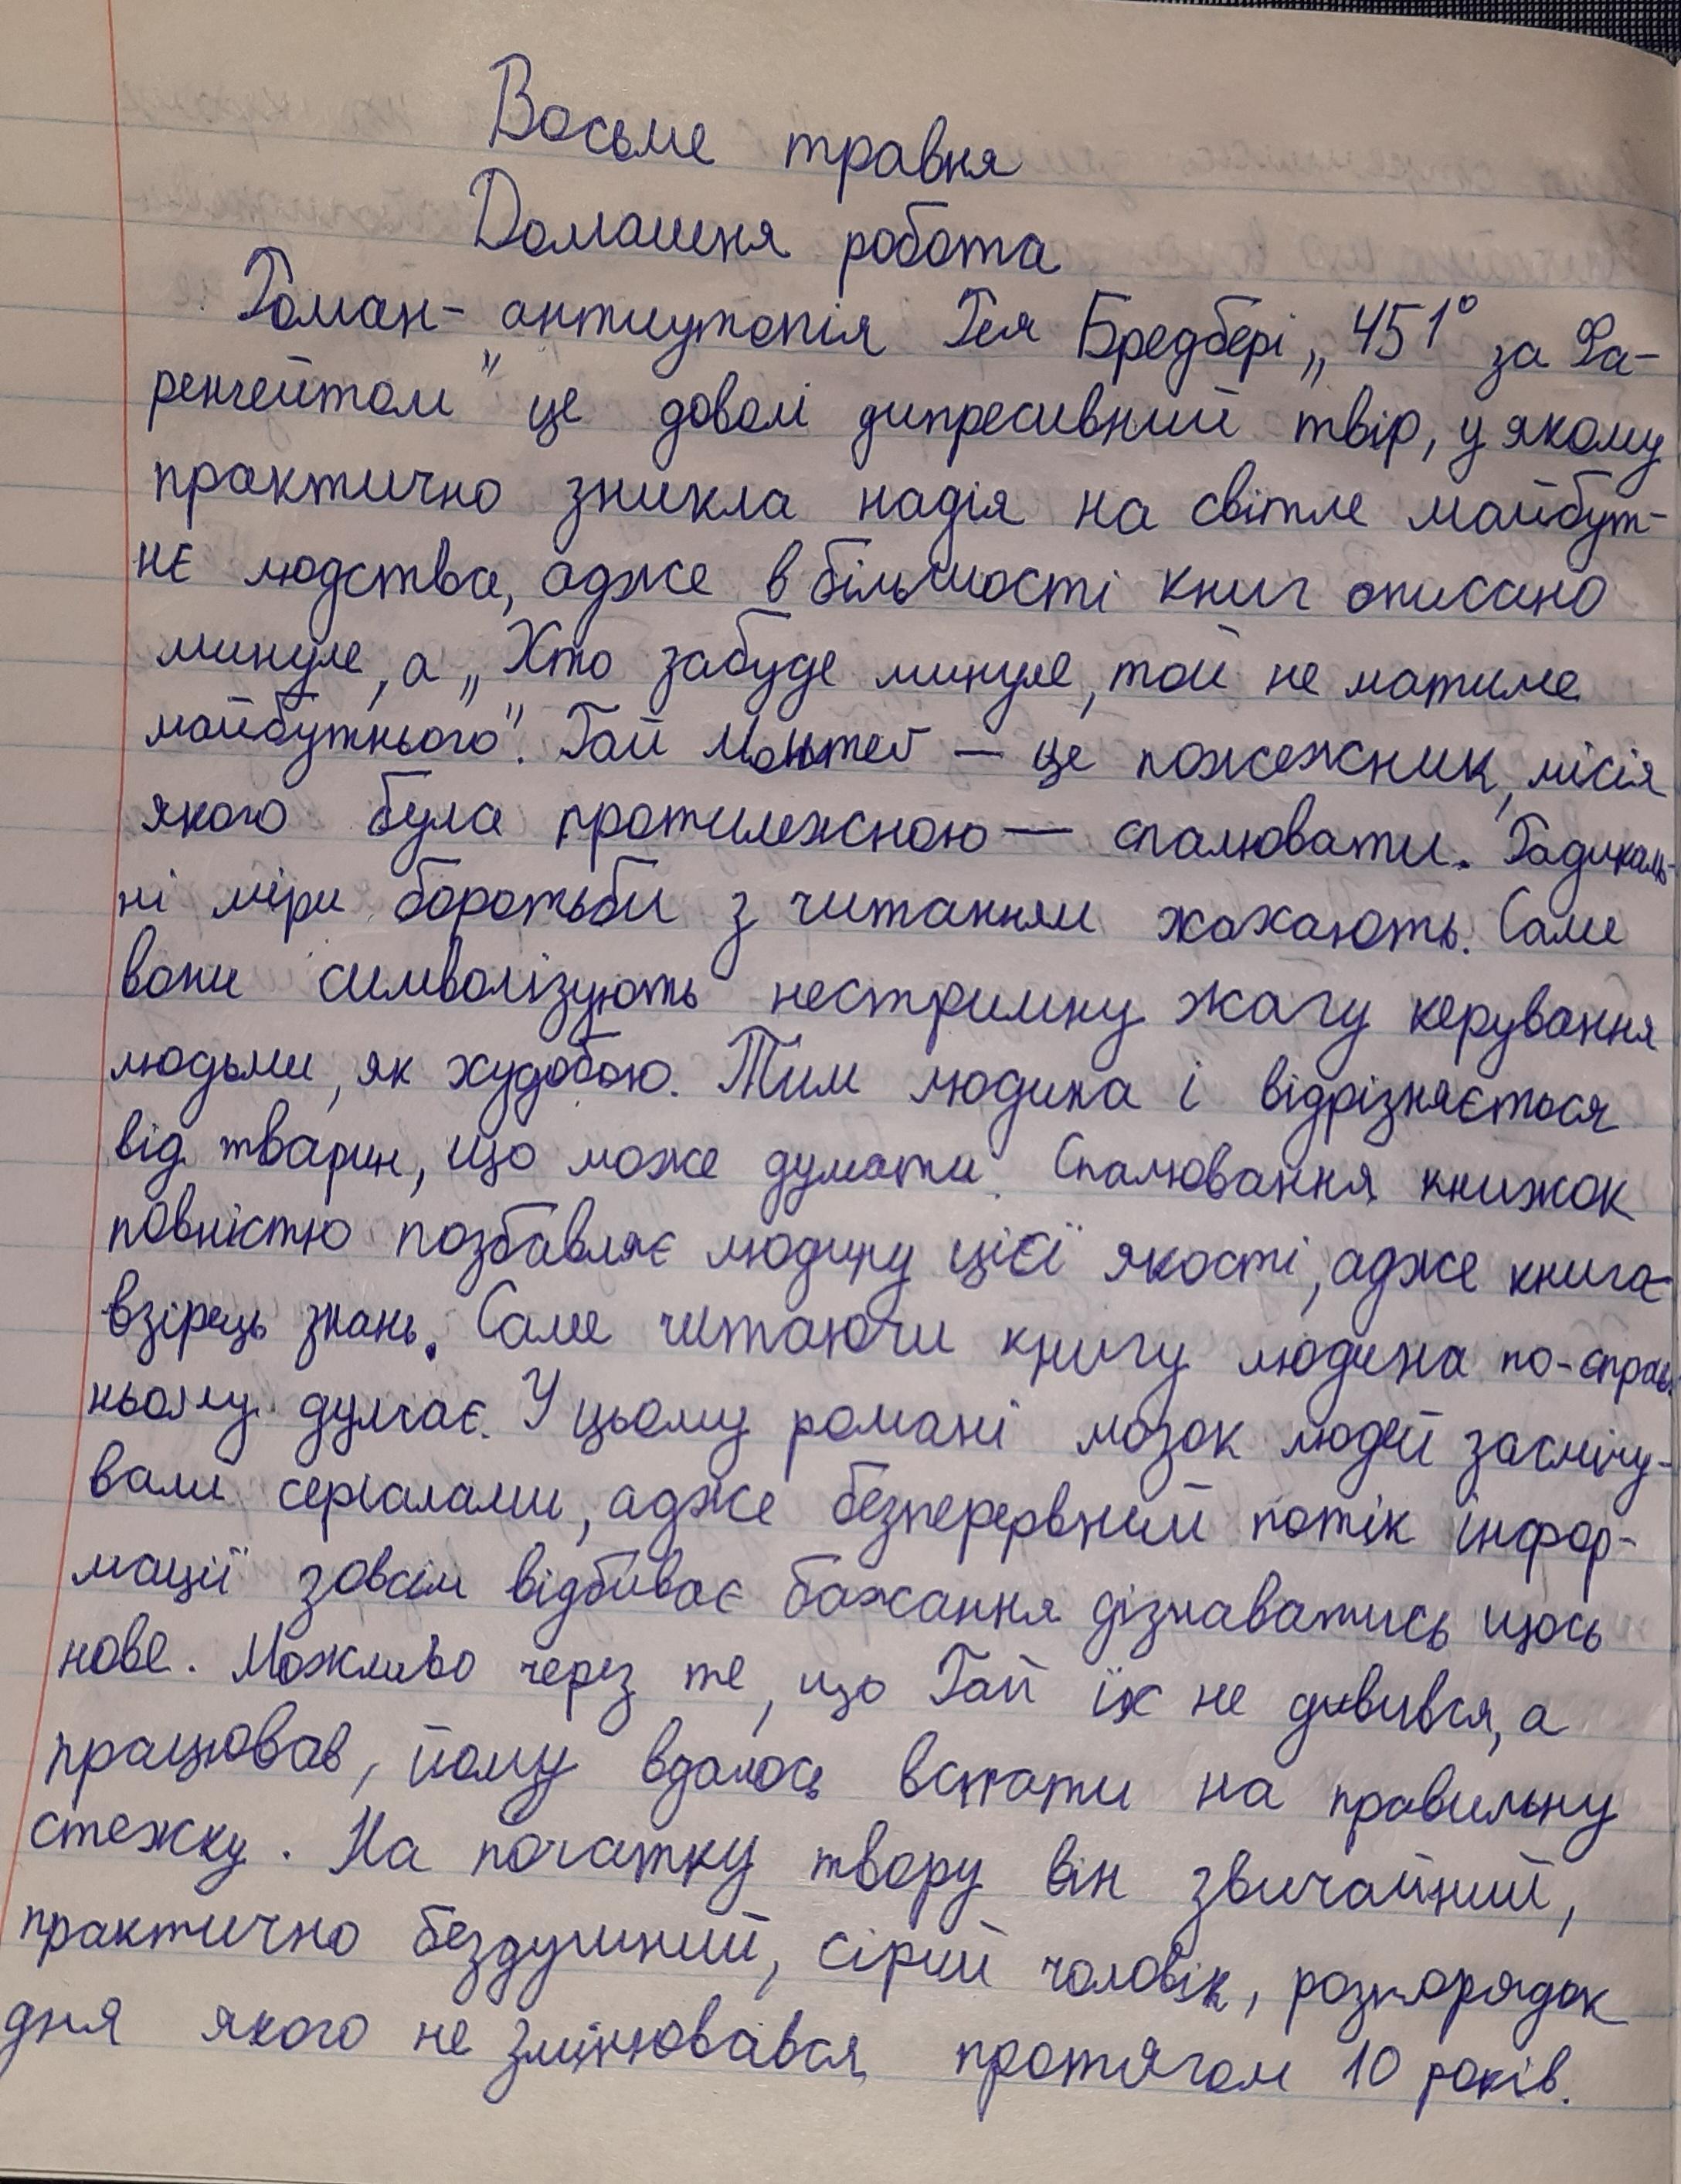 Восьме травня
Домашня робота
Роман-антиутопія Рея Бредбері „451° за Фа-
ренгейтом" це доволі дипресивний твір, у якому
практично зникла надія на світле майбут-
нє людства, адже в більшості книг описано
минуле, а „Хто забуде минуле, той не матиме
майбутнього". Гай Монтег — це пожежник, місія
якого була протилежною — спалювати. Радикаль-
ні міри боротьби з читанням жахають. Саме
вони символізують нестримну жагу керування
людьми, як худобою. Тим людина і відрізняється
від тварин, що може думати. Спалювання книжок
повністю позбавляє людину цієї якості, адже книга-
взірець знань. Саме читаючи книгу людина по-справ-
ньому думає. У цьому романі мозок людей засмічу-
вали серіалами, адже безперервний потік інфор-
мації зовсім відбиває бажання дізнаватись щось
нове. Можливо через те, що Гай їх не дивився, а
працював, йому вдалось встати на правильну
стежку. На початку твору він звичайний,
практично бездушний, сірий чоловік, розпорядок
дня якого не змінювався протягом 10 років.